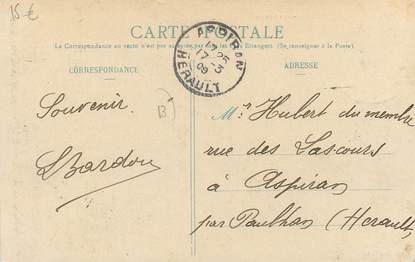 15 €
CARTE POSTALE
La Correspondance au recto n'est pas acceptée par tous les Pays Etrangers (Se renseigner à la Poste)
CORRESPONDANCE
ADRESSE
ASPIRAN
17-3
09
HERAULT
Souvenir
LBardou
Mr Hubert du membre
rue des Lascours
à Aspiran
par Paulhan (Herault)